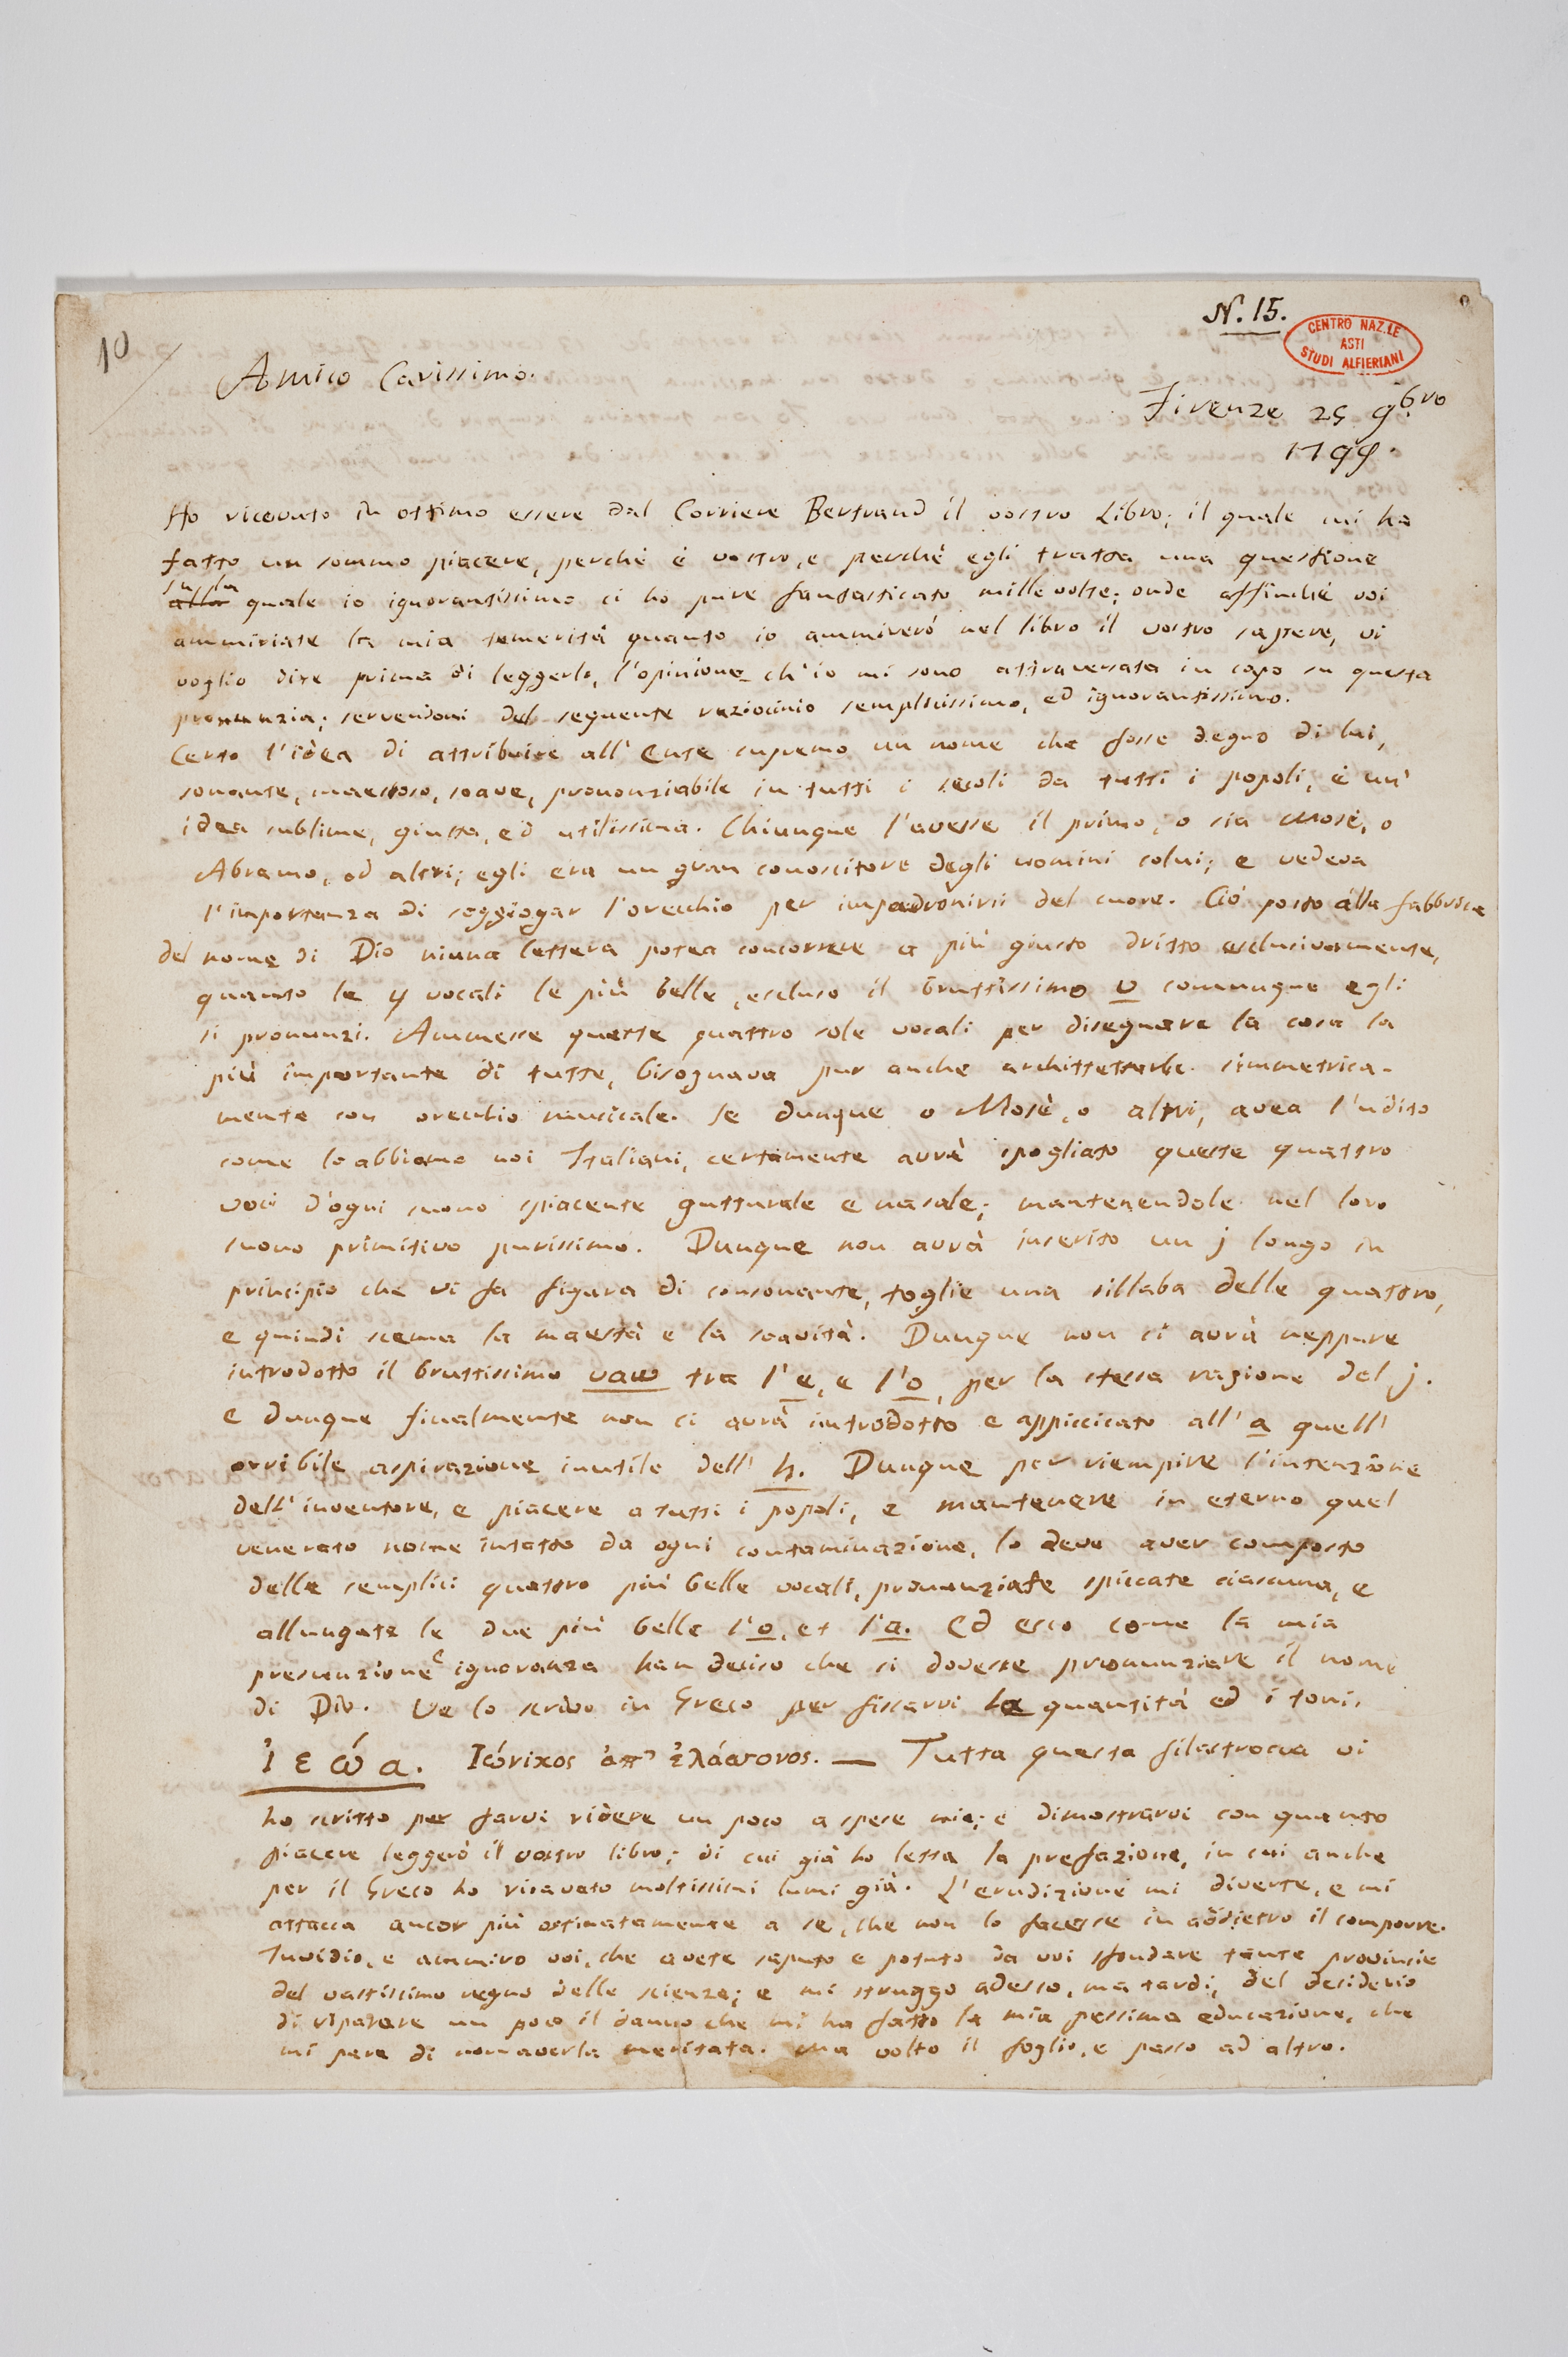 N. 15.
CENTRO NAZ.LE
ASTI
STUDI ALFIERIANI
10
Amico Carissimo.
Firenze 25 9bre
1799.
Ho ricevuto in ottimo essere dal Corriere Bertrand il vostro Libro; il quale mi ha
fatto un sommo piacere, perchè è vostro, e perchè egli tratta una questione
sulla
alla quale io ignorantissimo ci ho pure fantasticato mille volte; onde affinchè voi
ammiriate la mia temerità quanto io ammirerò nel libro il vostro sapere, vi
voglio dire prima di leggerlo, l'opinione ch'io mi sono attraversata in capo su questa
pronunzia; servendomi del seguente raziocinio semplicissimo, ed ignorantissimo.
Certo l'idea di attribuire all' Ente supremo un nome che fosse degno di lui,
sonante, maestoso, soave, prononziabile in tutti i secoli da tutti i popoli, è un'
idea sublime, giusta, ed utilissima. Chiunque l'avesse il primo, o sia Mosè, o
Abramo, od altri; egli era un gran conoscitore degli uomini colui; e vedeva
l'importanza di soggiogar l'orecchio per impadronirsi del cuore. Ciò posto alla fabbrica
del nome di Dio niuna lettera potea concorrere a più giusto dritto esclusivamente,
quanto le 4 vocali le più belle, escluso il bruttissimo u comunque egli
si pronunzi. Ammesse queste quattro sole vocali per disegnare la cosa la
più importante di tutte, bisognava pur anche architettarle simmetrica-
mente con orecchio musicale. Se dunque o Mosè, o altri, avea l'udito
come lo abbiamo noi Italiani, certamente avrà spogliato queste quattro
voci d'ogni suono spiacente gutturale e nasale; mantenendole nel loro
suono primitivo purissimo. Dunque non avrà inserito un j longo in
principio che vi fa figura di consonante, toglie una sillaba delle quattro,
e quindi scema la maestà e la soavità. Dunque non ci avrà neppure
introdotto il bruttissimo vau tra l'e, e l'o, per la stessa ragione del j.
e dunque finalmente non ci avrà introdotto e appiccicato all' a quell'
orribile aspirazione inutile dell' h. Dunque per riempire l'intenzione
dell' inventore, e piacere a tutti i popoli, e mantenere in eterno quel
venerato nome intatto da ogni contaminazione, lo deve aver composto
delle semplici quattro più belle vocali, pronunziate spiccate ciascuna, e
allungate le due più belle l'o, et l'a. Ed ecco come la mia
presunzione e ignoranza han deciso che si dovesse pronunziare il nome
di Dio. Ve lo scrivo in Greco per fissarvi la quantità ed i toni.
ἰ ε ώ α. Ἰώνικος ἀπ' ἐλάσσονος. — Tutta questa filastrocca vi
ho scritto per farvi ridere un poco a spese mie; e dimostrarvi con quanto
piacere leggerò il vostro libro; di cui già ho letta la prefazione, in cui anche
per il Greco ho ricavato moltissimi lumi già. L'erudizione mi diverte, e mi
attacca ancor più ostinatamente a se, che non lo facesse in addietro il comporre.
Invidio, e ammiro voi, che avete saputo e potuto da voi sfondare tante provincie
del vastissimo regno delle scienze; e mi struggo adesso, ma tardi, del desiderio
di riparare un poco il danno che mi ha fatto la mia pessima educazione, che
mi pare di non averla meritata. Ma volto il foglio, e passo ad altro.